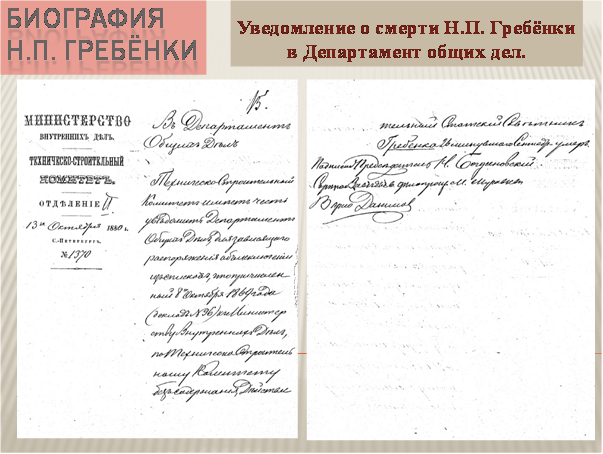 БИОГРАФИЯ
Н.П. ГРЕБЁНКИ
Уведомление о смерти Н.П. Гребёнки
в Департамент общих дел.
15.
МИНИСТЕРСТВО
ВНУТРЕННИХЪ ДѢЛЪ.
ТЕХНИЧЕСКО-СТРОИТЕЛЬНЫЙ
КОМИТЕТЪ.
ОТДѢЛЕНІЕ II
13 го Октября 1880 г.
С.-Петербургъ.
№ 1370
Въ Департаментъ
Общихъ Дѣлъ
Техническо-Строительный
Комитетъ имѣетъ честь
увѣдомить Департаментъ
Общихъ Дѣлъ, для зависящаго
распоряженія объ исключеніи
изъ списковъ, что причислен-
ный 8 Октября 1869 года
(докладъ № 36) къ Министер-
ству Внутреннихъ Дѣлъ,
по Техническо-Строитель-
ному Комитету
безъ содержанія, Дѣйстви-
тельный Статскій Совѣтникъ
Гребёнка 26 минувшаго Сентября умеръ.
Подписалъ Предсѣдатель
Скрѣпилъ
Вѣрно